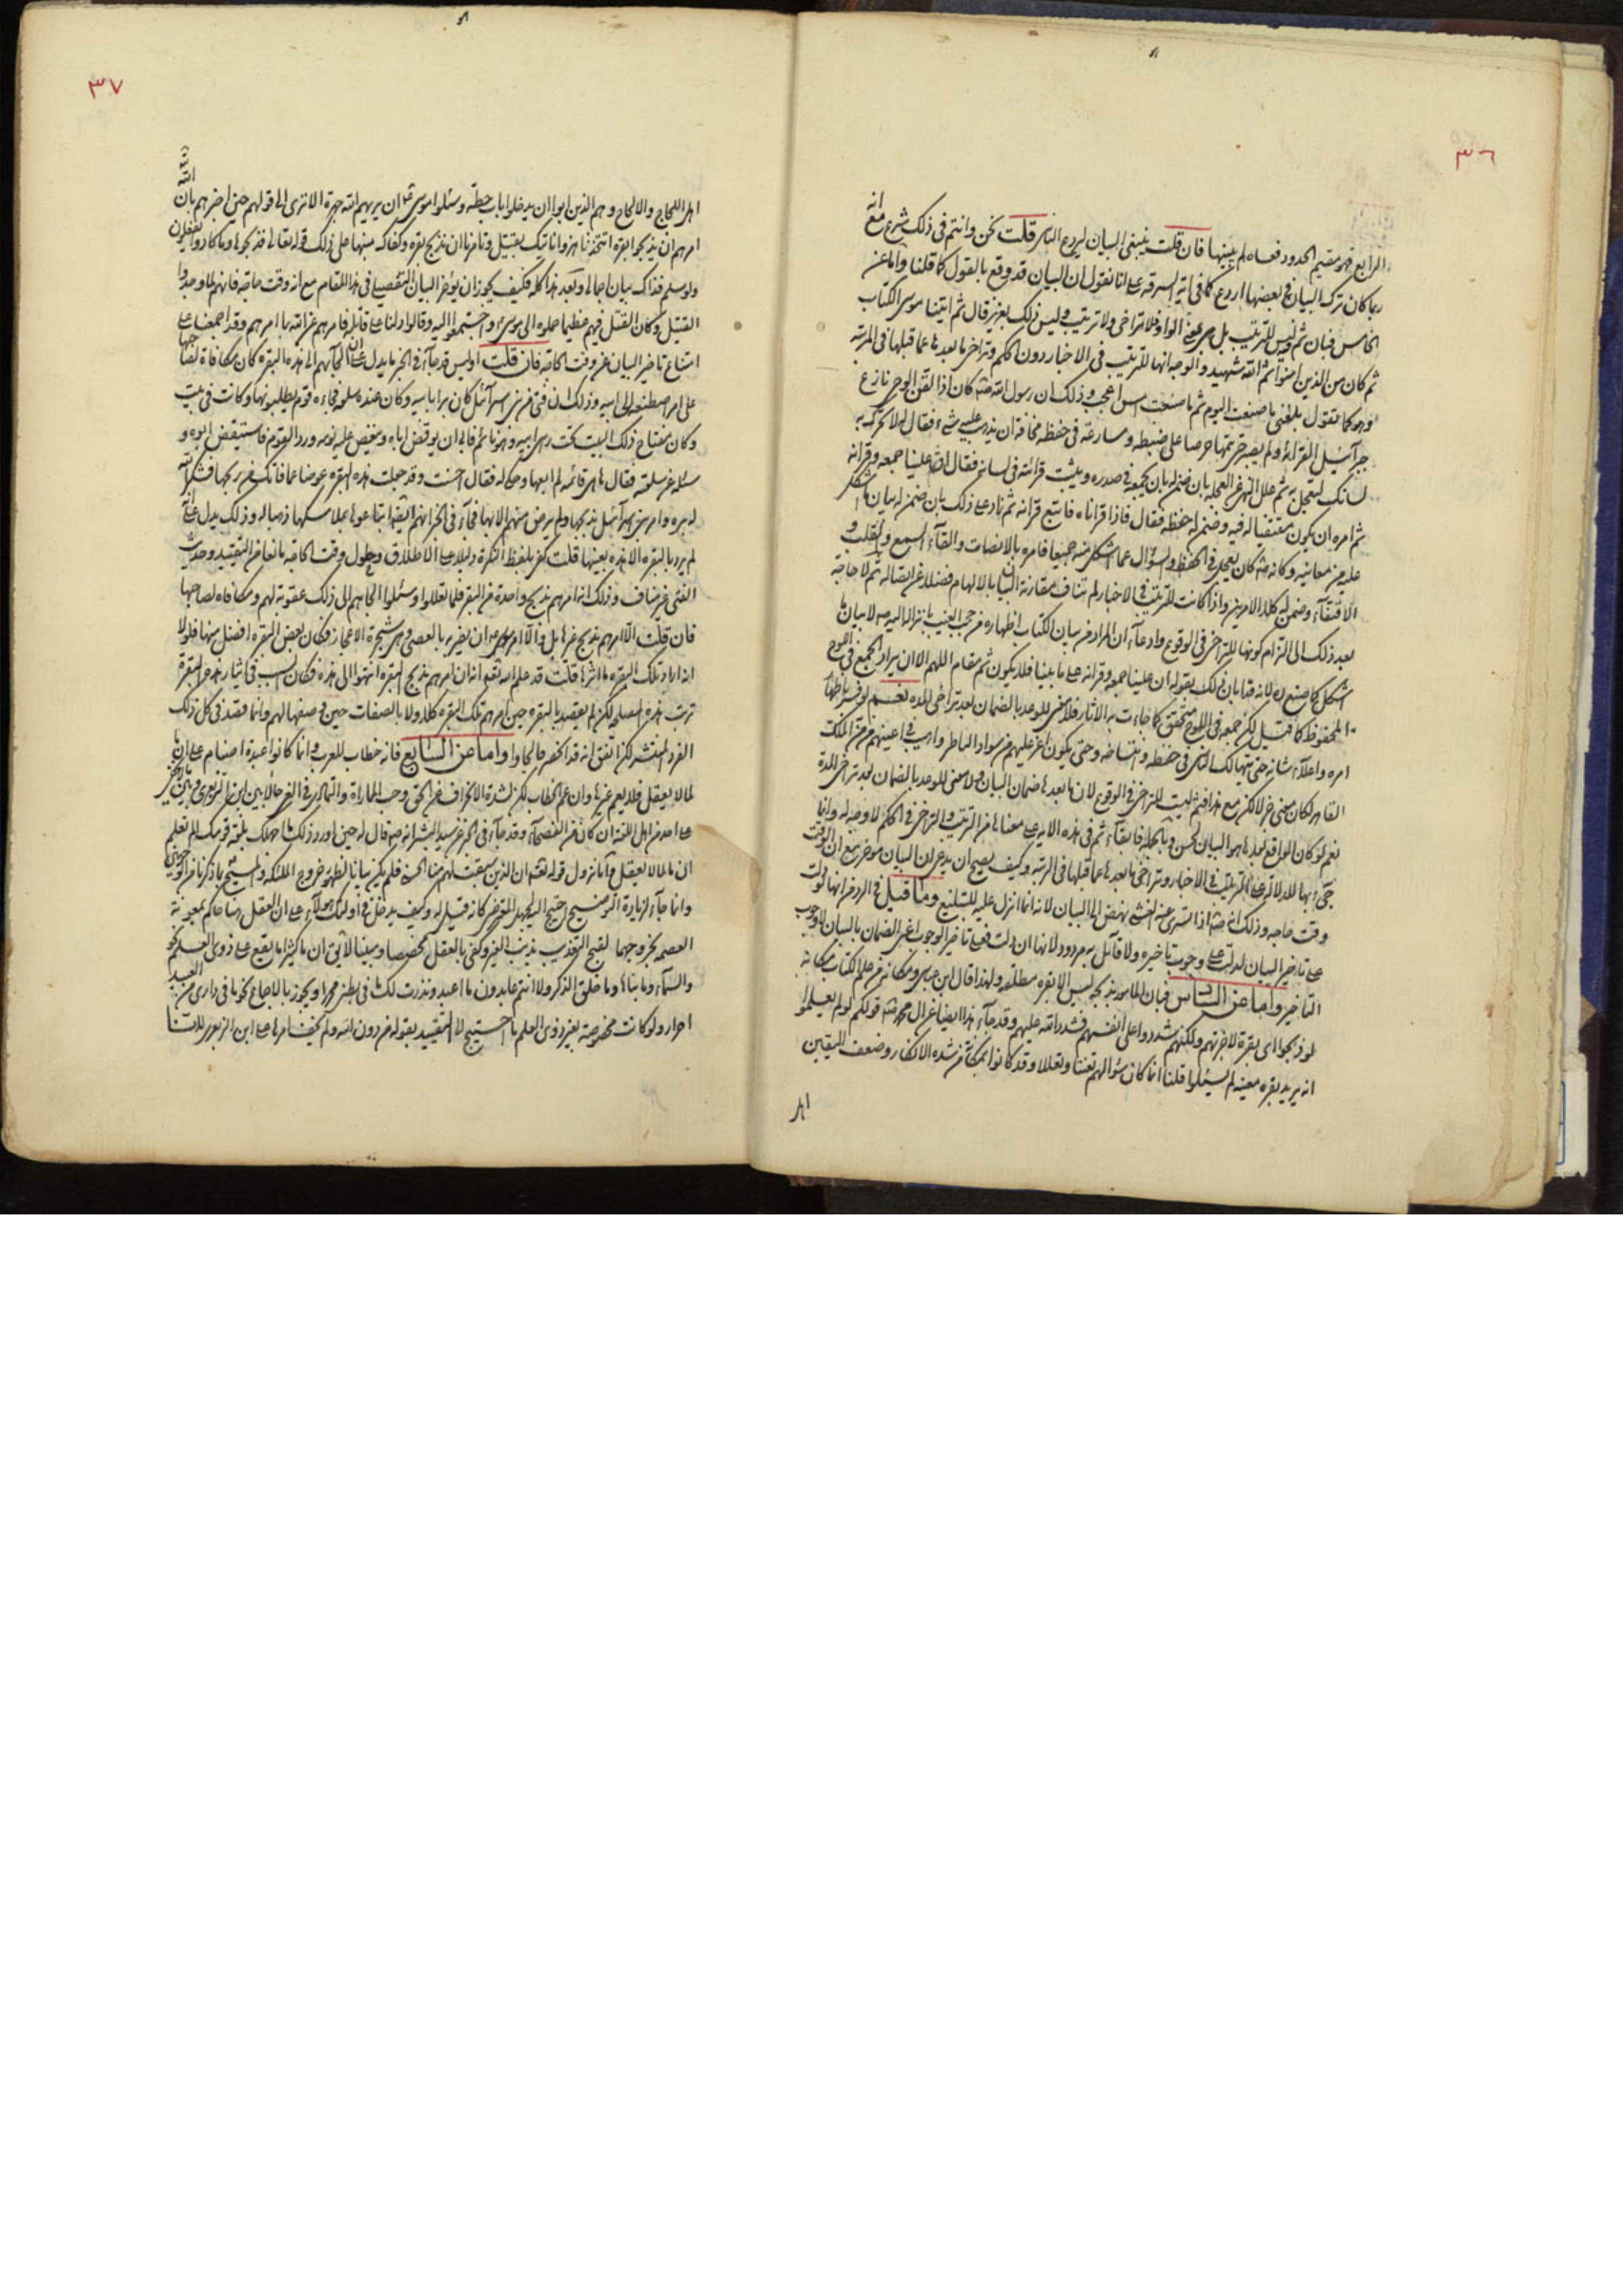 ٣٦
الرابع فهو مقيم الحدود فعساه لم يبينها فان قلت ينبغى البيان ليردع الناس قلت نحن وانتم فى ذلك شرع مع انه
ربما كان ترك البيان فى بعضها اردع كما فى اية السرقة على انا نقول ان البيان قد وقع بالقول كما قلنا واما عن
الخامس فبان ثم ليس للترتيب بل هى بمعنى الواو فلا تراخى ولا ترتيب وليس ذلك بعزيز قال ثم اتينا موسى الكتاب
ثم كان من الذين امنوا ثم الله شهيد والوجه انها للترتيب فى الاخبار دون الحكم وتراخى ما بعدها عما قبلها فى المرتبة
وهو كما تقول بلغنى ما صنعت اليوم ثم ما صنعت امس اعجب وذلك ان رسول الله صه كان اذا لقن الوحى نازع
جبرآئيل القرائة ولم يصبر حتى يتمها حرصا على ضبطه ومسارعة فى حفظه مخافة ان يذهب عليه شئ فقال له لا تحرك به
لسانك لتعجل به ثم علل النهى عن العجلة بان ضمن له بان يجمعه فى صدره ويثبت قرائته فى لسانه فقال ان علينا جمعه وقرانه
ثم امره ان يكون مقتفيا له فيه وضمن له حفظه فقال فاذا قراناه فاتبع قرانه ثم زاد على ذلك بان ضمن له بيان ما اشكل
عليه من معانيه وكانه صه كان يعجل فى الحفظ والسؤال عما اشكل منه جميعا فامره بالانصات والقآء السمع والقلب و
الاقتفآء وضمن له كلا الامرين واذا كانت للترتيب فى الاخبار لم تناف مقارنة البيان بالالهام فضلا عن اتصاله ثم لا حاجة
بعد ذلك الى التزام كونها للتراخى فى الوقوع وادعآء ان المراد من بيان الكتاب اظهاره من حجب الغيب بانزاله اليه صه لا بيان ما
اشكل كما صنع لانه قد ابان ذلك بقوله ان علينا جمعه وقرانه على ما بينا فلا يكون ثم مقام اللهم الا ان يراد الجمع فى اللوح
المحفوظ كما قيل لكن جمعه فى اللوح متحقق كما جاءت به الاثار فلا معنى للوعد بالضمان بعد تراخى المدة نعم لو فسر باظهار
امره واعلآء شانه حتى يتهالك الناس فى حفظه واقتناصه وحتى يكون اعز عليهم من سواد الناظر واهيب فى اعينهم من الملك
القاهر لكان معنى جزلا لكن مع هذا فثم ليست للتراخى فى الوقوع لان ما بعدها ضمان البيان ولا معنى للوعد بالضمان بعد تراخى المدة
نعم لو كان الواقع بعدها هو البيان لحسن وبالجملة فابقآء ثم فى هذه الاية على معناها من الترتيب والتراخى فى الحكم لا وجه له وانما
جئ بها للدلالة على الترتيب فى الاخبار وتراخى ما بعدها عما قبلها فى الرتبة وكيف يصح ان يدعى ان البيان مؤخر مع ان الوقت
وقت حاجة وذلك انه صه اذا سرى عنه الغشى نهض الى البيان لانه انما انزل عليه للتبليغ وما قيل فى الرد من انها لو دلت
على تاخير البيان لدلت على وجوب تاخيره ولا قآئل به مردود لانها ان دلت فعلى تاخير الوجوب اعنى الضمان بالبيان لا وجوب
التاخير واما عن السادس فبان المامور بذبحه ليس الا بقرة مطلقة ولهذا قال ابن عباس ومكانه من علم الكتاب مكانه
لو ذبحوا اى بقرة لاجزتهم ولكنهم شددوا على انفسهم فشدد الله عليهم وقد جآء هذا ايضا عن ال محمد صه قولكم لو لم يعلموا
انه يريد بقرة معينة لم يسئلوا قلنا انما كان سؤالهم تعنتا وتعللا وقد كانوا بمكان من شدة الانكار وضعف اليقين
اهل
٣٧
اهل اللجاج والالحاح وهم الذين ابوا ان يدخلوا باب حطة وسئلوا موسى ان يريهم الله جهرة الا ترى الى قولهم حين اخبرهم بان الله
امرهم ان يذبحوا بقرة اتتخذنا هزوا ناتيك بقتيل وتامرنا ان نذبح بقرة وكفاك منبها على ذلك قوله تعالى فذبحوها وما كادوا يفعلون
ولو سلم فذاك بيان اجمالى وبعد هذا كله فكيف يجوز ان يؤخر البيان التفصيلى فى هذا المقام مع انه وقت حاجة فانهم لما وجدوا
القتيل وكان القتل فيهم عظيما حملوه الى موسى واجتمعوا اليه وقالوا دلنا على قاتله فامرهم عن الله بما امرهم وقد اجمعنا على
امتناع تاخير البيان عن وقت الحاجة فان قلت اوليس قد جآء فى الخبر ما يدل على ان الجآئهم الى هذه البقرة كان مكافاة لصاحبها
على امر اصطنعه الى ابيه وذلك ان فتى من بنى اسرآئيل كان برا بابيه وكان عنده سلعة فجاءه قوم يطلبونها وكانت فى بيت
وكان مفتاح ذلك البيت تحت راس ابيه وهو نائم فابى ان يوقض اباه وينغص عليه نومه ورد القوم فاستيقض ابوه و
سئله عن سلعته فقال هى قائمة لم ابعها وحكى له فقال احسنت وقد جعلت هذه البقرة عوضا عما فاتك من ربحها فشكر الله
له بره وامر بنى اسرآئيل بذبحها ولم يرض منهم الا بها فجآء فى اخرانهم اليه ابتاعوها بملا مسكها ذهبا له وذلك يدل على انه
لم يرد بالبقرة الا هذه بعينها قلت كفى بلفظ النكرة دليلا على الاطلاق وحلول وقت الحاجة مانعا من التقييد وحديث
الفتى غير مناف وذلك انه امرهم بذبح واحدة من البقر فلما تعللوا وسئلوا الجاهم الى ذلك عقوبة لهم ومكافاة لصاحبها
فان قلت الا امرهم بذبح غيرها بل والا امر موسى ان يضربه بالعصى وهى شجرة الاعجاز وكان بعض البقرة افضل منها فلولا
انه اراد تلك البقرة ما اثرها قلت قد علم الله تعه انه ان امرهم بذبح البقرة انتهوا الى هذه فكان السبب فى ايثار هذه البقرة
ترتب هذه المصلحة لكن لم يقصد بالبقرة حين امرهم تلك البقرة كلا ولا بالصفات حين وصفها لهم وانما قصد فى كل ذلك
الفرد المنتشر لكن اتفق انه قد انحصر فالجاوا واما عن السابع فانه خطاب للعرب وانما كانوا عبدة اصنام على ان ما
لما لا يعقل فلا يعم غيرها وان عم الخطاب لكن لشدة الانحراف عن الحق وحب المماراة والتمادى فى الغى
على احد من اهل اللغة ان كان من الفصحآء وقد جآء فى الخبر عن سيد البشر انه صه قال له حين اورد ذلك ما اجهلك بلغة قومك الم تعلم
ان ما لما لا يعقل وانما نزول قوله تعه ان الذين سبقت لهم منا الحسنى فلم يكن بيانا لظهور خروج الملئكة والمسيح بما ذكرنا من الوجهين
وانما جآء لزيادة التوضيح وكيف يدخل اولئك هؤلاء على ان العقل هنا حاكم بمعونة
العصمة بخروجهما لقبح التعذيب بذنب الغير وكفى بالعقل مخصصا ومبينا لا يق ان ما كثيرا ما يقع على ذوى العلم نحو
والسمآء وما بناها وما خلق الذكر ولا انتم عابدون ما اعبد ونذرت لك ما فى بطنى محررا ويجوز بالاجماع نحو ما فى دارى من العبيد
احرار ولو كانت مخصوصة بغير ذوى العلم ما احتيج لا لتقييد بقوله من دون الله ولم يخف امرها على ابن الزبعرى لانا